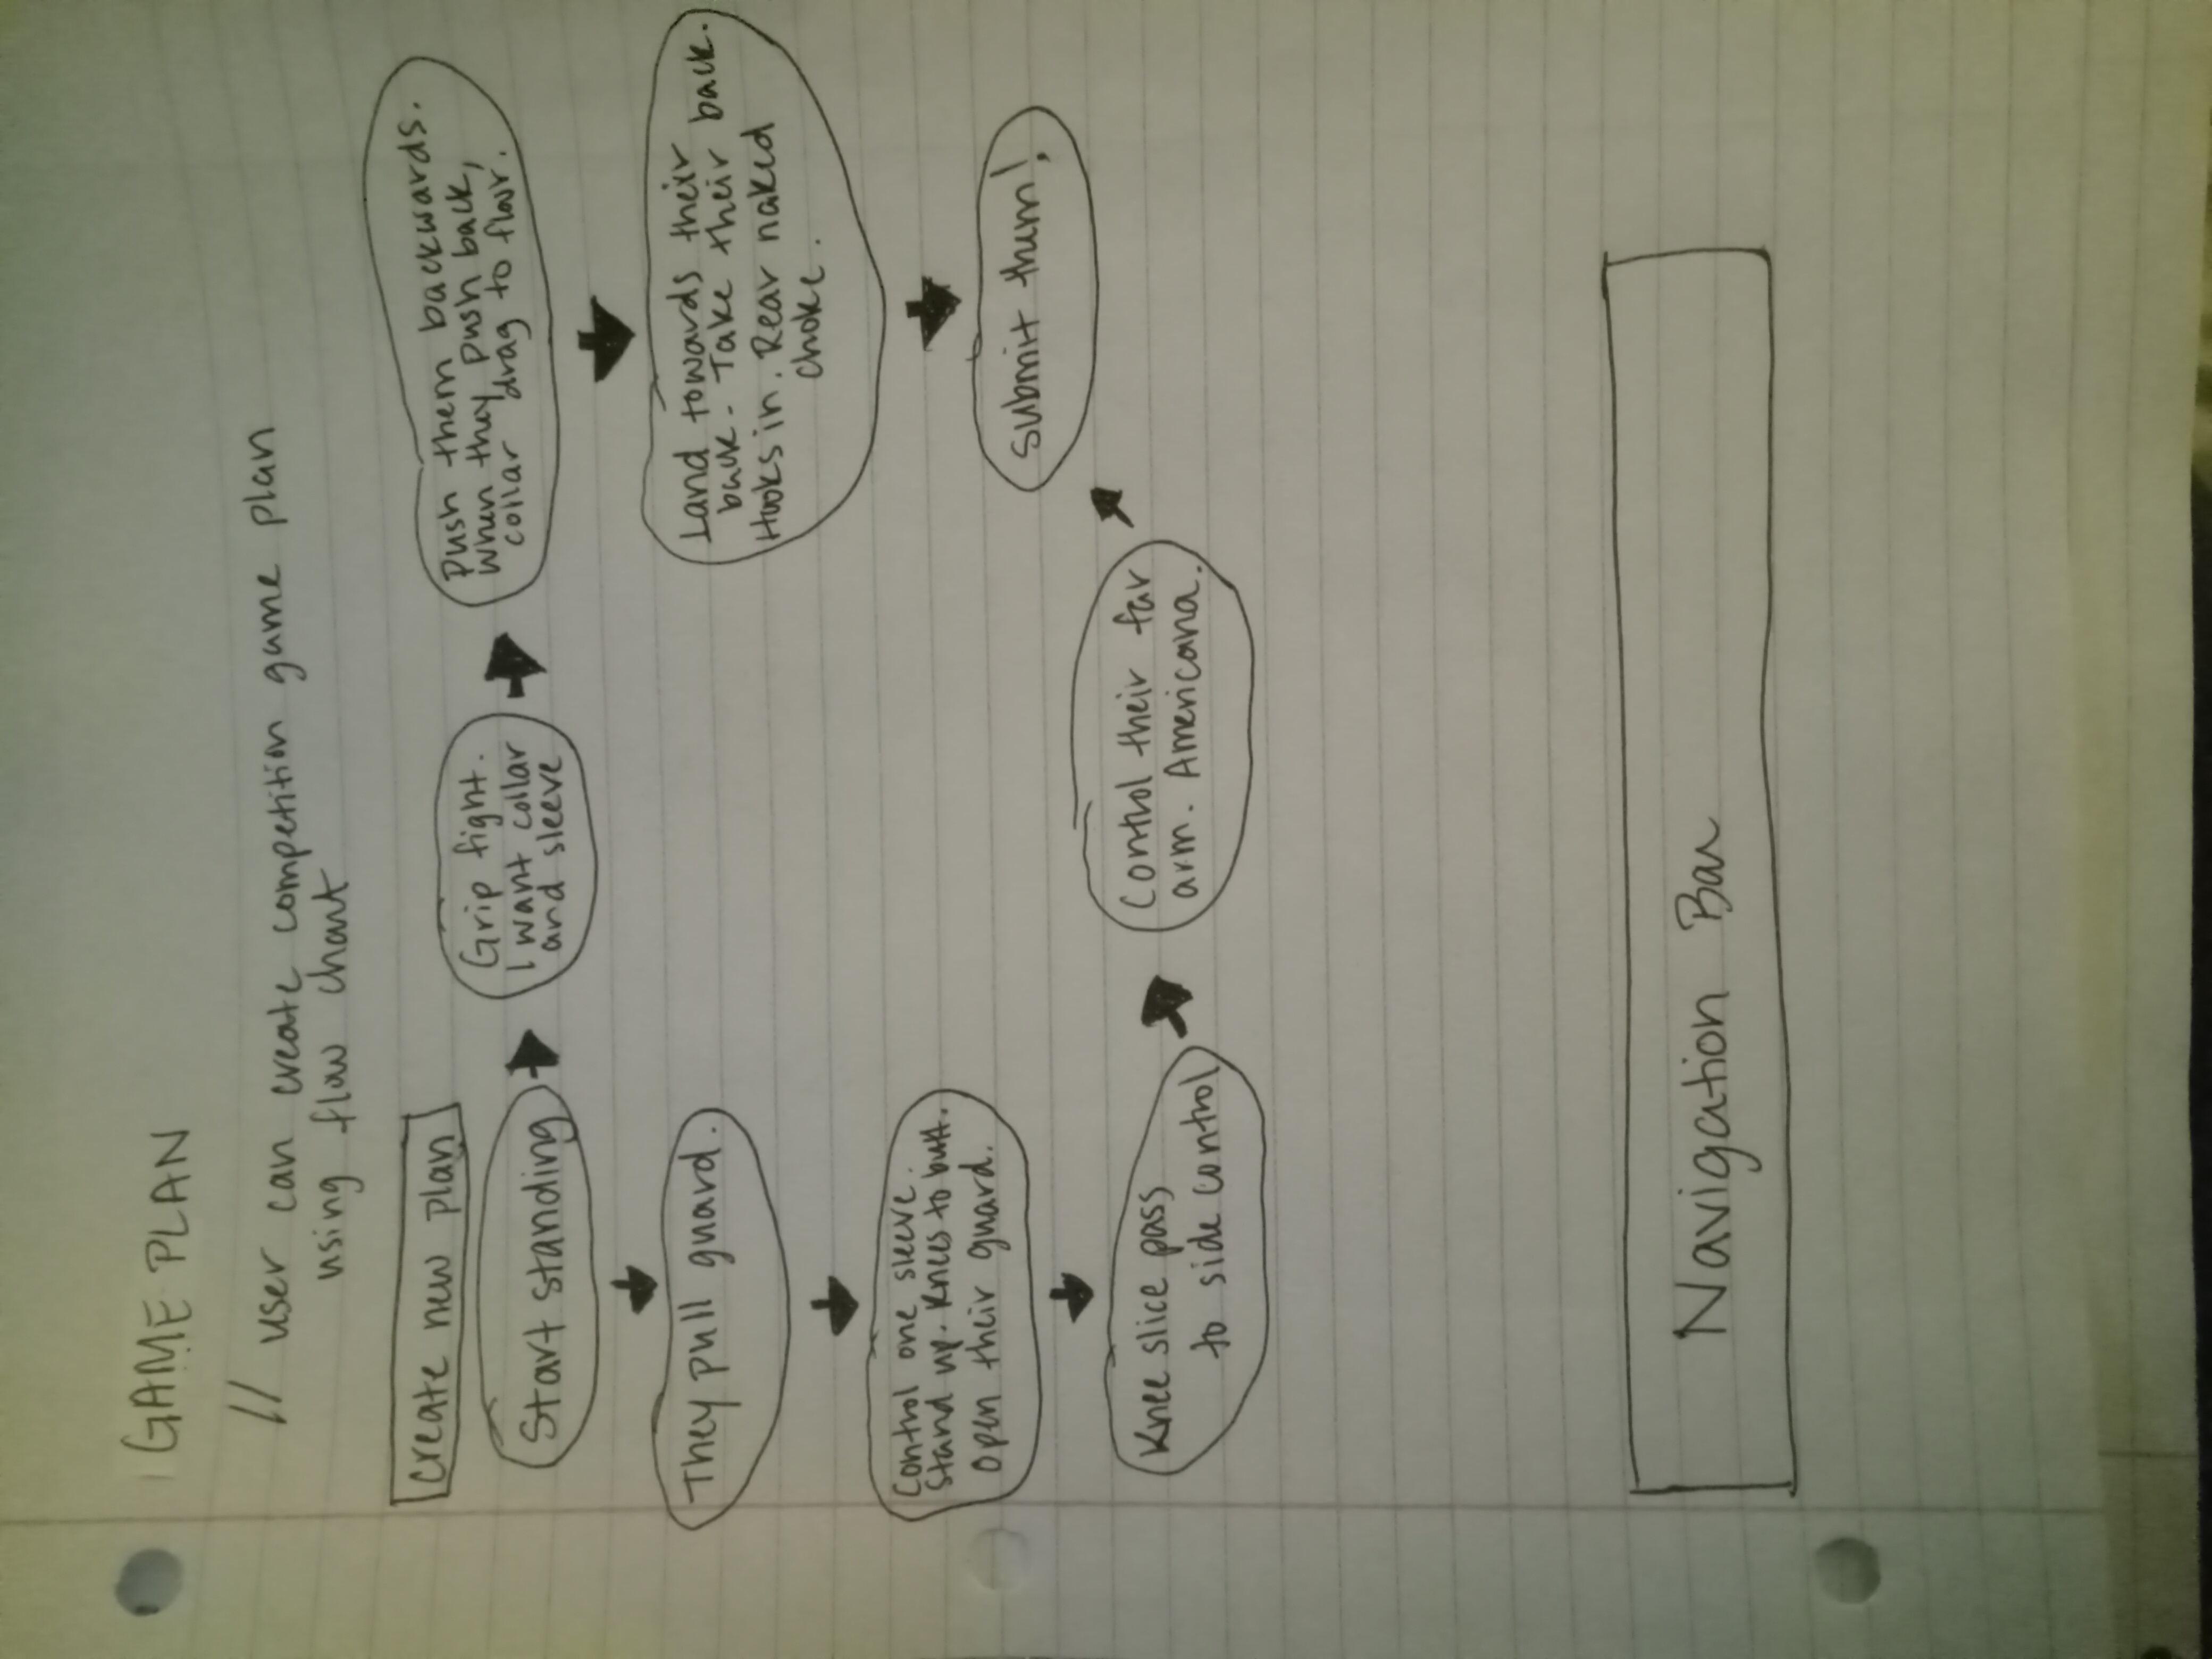 GAME PLAN
// user can create competition game plan
using flow chart
create new plan
Start standing
Grip fight.
I want collar
and sleeve
Push them backwards.
When they push back,
collar drag to floor.
They pull guard.
Land towards their
back. Take their back.
Hooks in. Rear naked
choke.
Control one sleeve.
Stand up. Knees to butt.
Open their guard.
Submit them!
Knee slice pass
to side control
Control their far
arm. Americana.
Navigation Bar